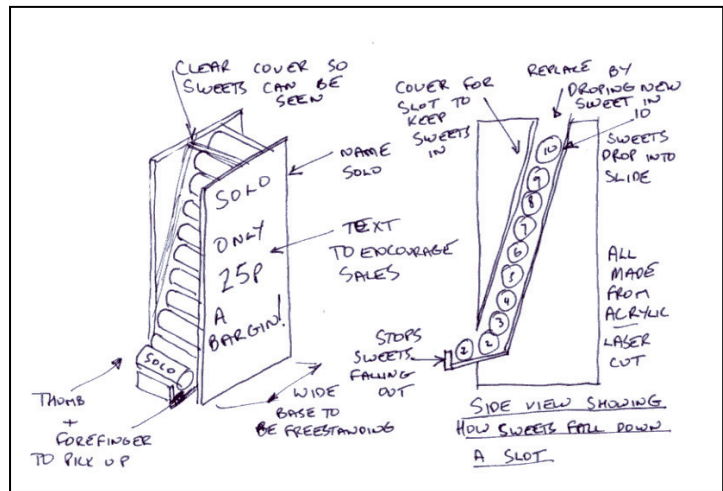 CLEAR COVER SO
SWEETS CAN BE
SEEN
NAME
SOLO
SOLO
ONLY
25P
A
BARGIN!
TEXT
TO ENCOURAGE
SALES
SOLO
THUMB
+
FOREFINGER
TO PICK UP
WIDE
BASE TO
BE FREESTANDING
COVER FOR
SLOT TO
KEEP
SWEETS
IN
REPLACE BY
DROPING NEW
SWEET IN
10
SWEETS
DROP INTO
SLIDE
10
9
8
7
6
5
4
3
2
2
STOPS
SWEETS
FALLING
OUT
ALL
MADE
FROM
ACRYLIC
LASER
CUT
SIDE VIEW SHOWING
HOW SWEETS FALL DOWN
A SLOT